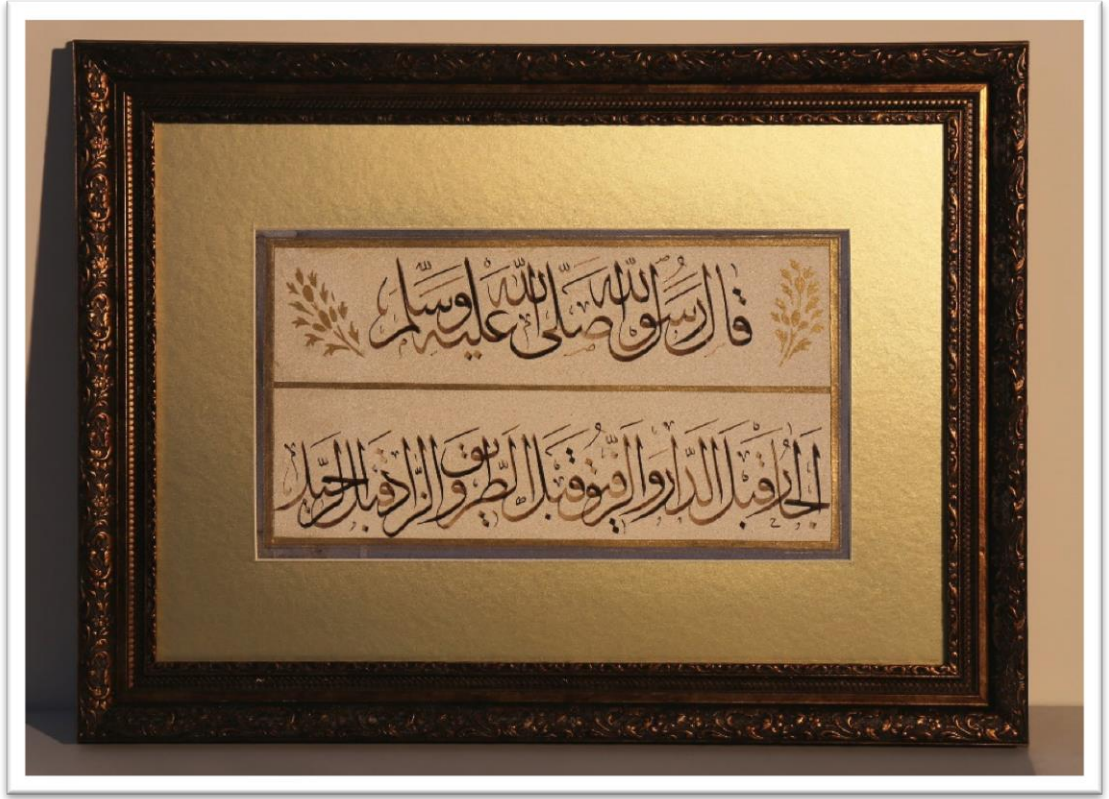 قال رسول الله صلى الله عليه وسلم
الجار قبل الدار والرفيق قبل الطريق والزاد قبل الرحيل